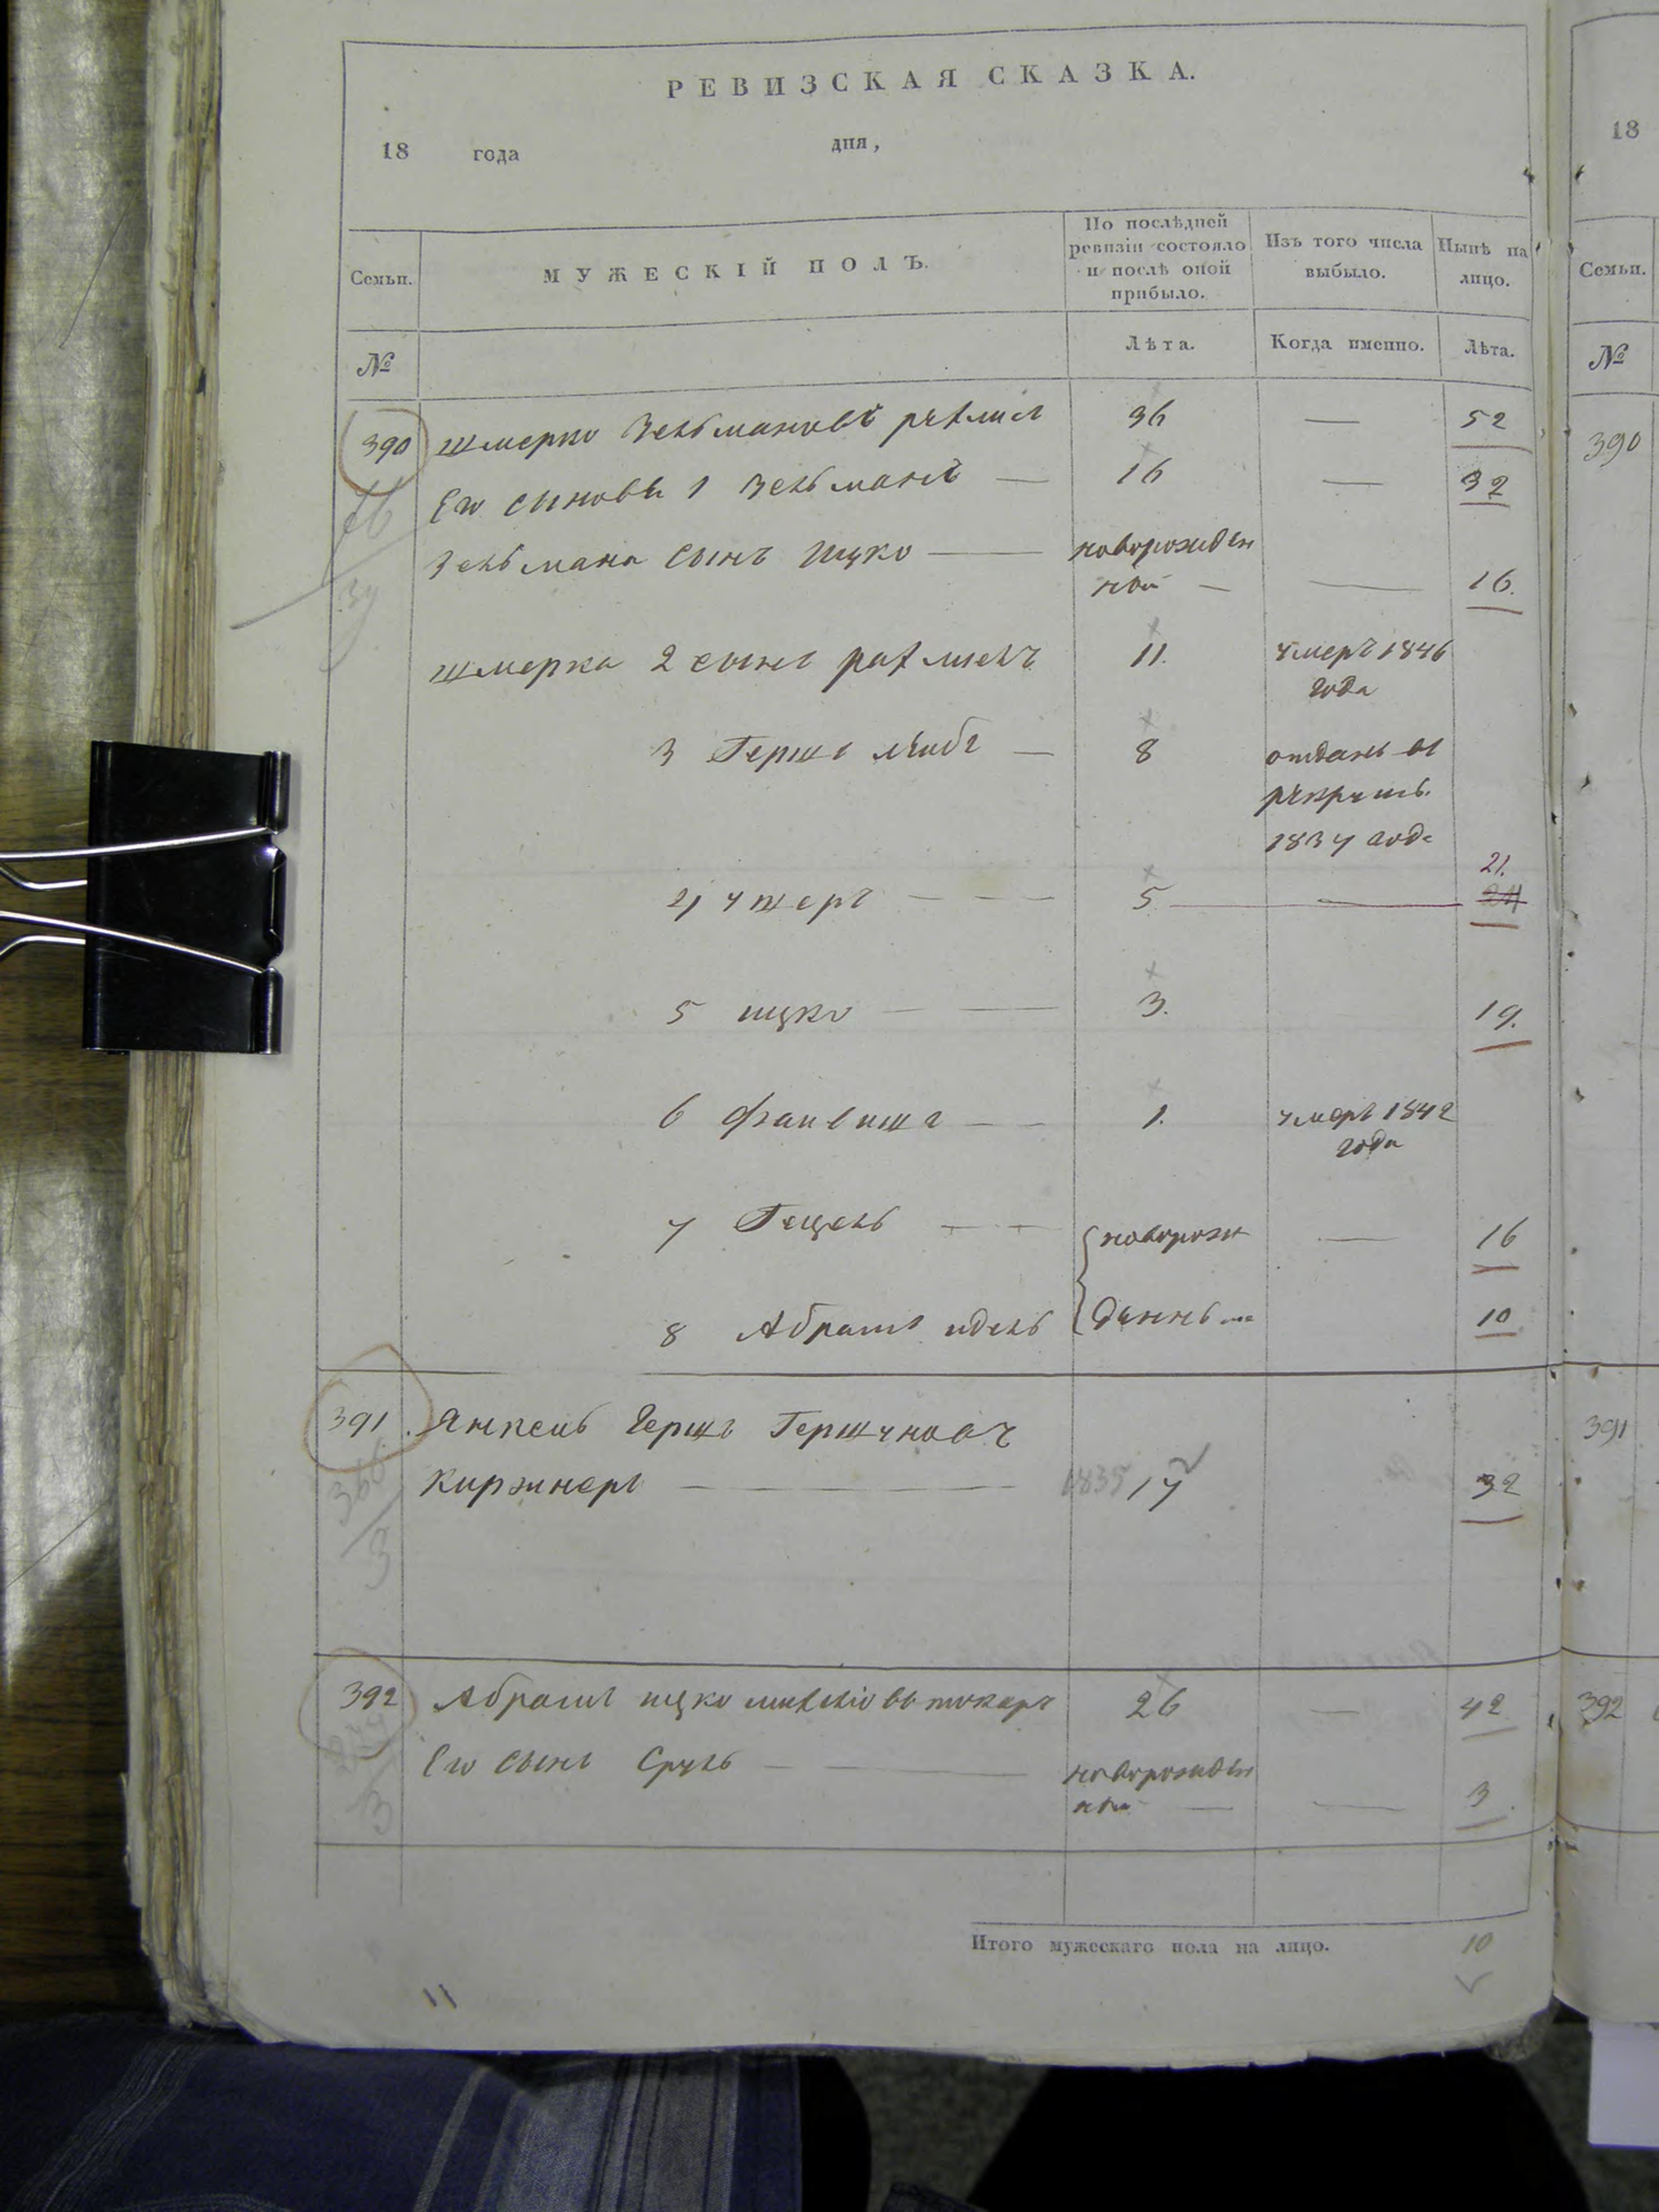 РЕВИЗСКАЯ СКАЗКА.
18 года дня,
18
Семьи.
МУЖЕСКІЙ ПОЛЪ.
По послѣдней ревизіи состояло и послѣ оной прибыло.
Изъ того числа выбыло.
Нынѣ на лицо.
Семьи.
№
Лѣта.
Когда именно.
Лѣта.
№
390 Шмерко Зельмановъ 36 — 52
390
Его сыновья 1 Зельманъ — 16 — 32
Зельмана сынъ Ицко — новорожден
ной — — 16.
Шмерка 2 сынъ 11. умеръ 1846
года
3 Гершъ Лейбъ — 8 отданъ въ
рекруты
1837 года
21.
4 Ушеръ — — — 5 — 24
5 Ицко — — 3. 19.
6 Файвишъ — — 1. умеръ 1842
года
7 Гецель — — новорож — 16
8 Абрамъ Идель денные 10
391. Янкель Гершъ Гершуновъ
391
Киржнеръ — 1835 17 32
392 Абрамъ Ицко токаръ 26 — 42
392
Его сынъ Сруль — — новорожден
ной — — 3.
Итого мужескаго пола на лицо. 10